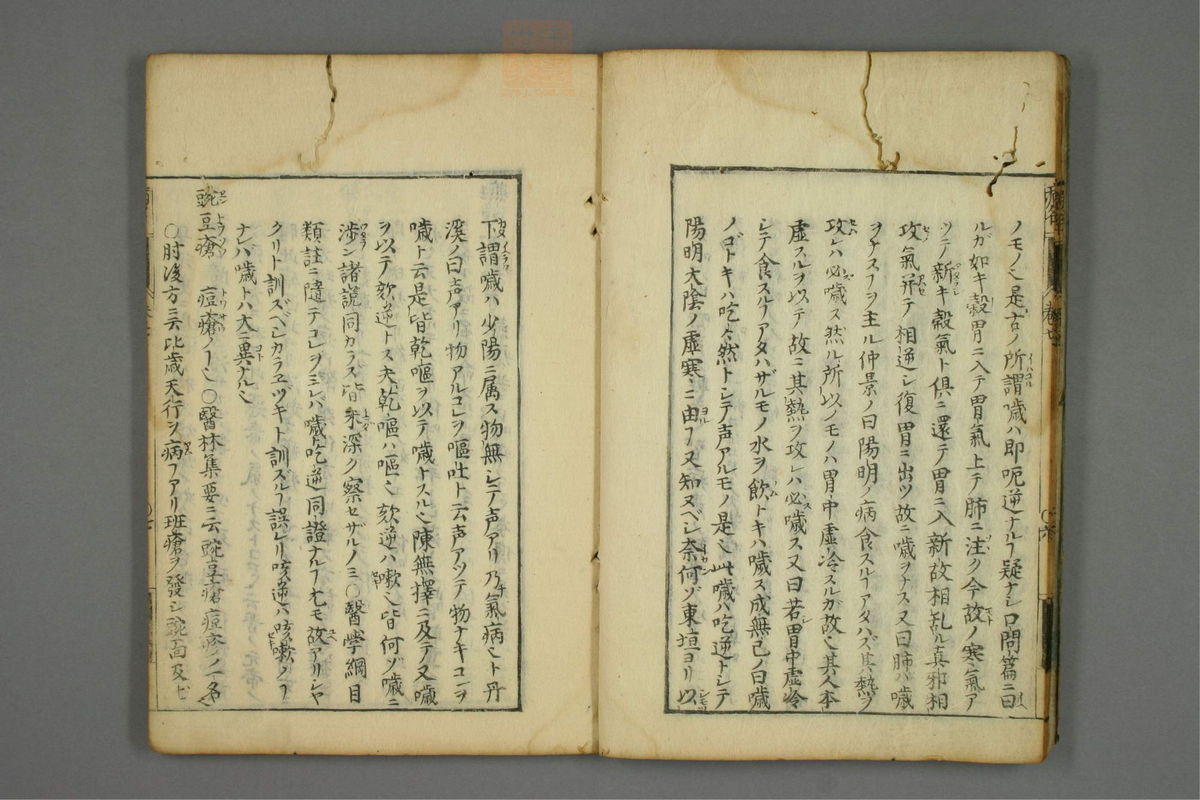 ノモノ也是古ノ所謂噦ハ即呃逆ナルヿ疑ナシ口問篇ニ曰
ルガ如キ穀胃ニ入テ胃氣上テ肺ニ注ク今故ノ寒氣ア
ツテ新キ穀氣ト倶ニ還テ胃ニ入新故相乱ル真邪相
攻氣并テ相逆シ復胃ニ出ツ故ニ噦ヲナス又曰肺ハ噦
ヲナスヿヲ主ル仲景ノ曰陽明ノ病食スルヿアタハズ其熱ヲ
攻レハ必噦ス然ル所以ノモノハ胃中虚冷スルガ故也其人本
虚スルヲ以テ故ニ其熱ヲ攻レハ必噦ス又曰若胃中虚冷
シテ食スルヿアタハザルモノ水ヲ飲トキハ噦ス成無己ノ曰噦
ノゴトキハ吃々然トシテ声アルモノ是也此噦ハ吃逆トシテ
陽明大陰ノ虚寒ニ由ヿ又知ヌベシ奈何ゾ東垣ヨリ以
下謂噦ハ少陽ニ属ス物無シテ声アリ乃氣病也ト丹
溪ノ曰声アリ物アルコレヲ嘔吐ト云声アツテ物ナキコレヲ
噦ト云是皆乾嘔ヲ以テ噦トスル也陳無擇ニ及テ又噦
ヲ以テ欬逆トス夫乾嘔ハ嘔也欬逆ハ嗽也皆何ゾ噦ニ
渉ン諸説同カラス皆未深ク察セザルノミ○醫学綱目
類註ニ隨テコレヲミレハ噦ト吃逆同證ナルヿ尤モ故アリシヤ
クリト訓ズベシカラヱヅキト訓ズルヿ誤レリ咳逆ハ咳嗽ノヿ
ナレバ噦トハ大ニ異ナル也
豌豆瘡 痘瘡ノヿ也○醫林集要ニ云豌豆瘡痘疹ノ一名
○肘後方ニ云比歳天行ヲ病アリ班瘡ヲ發シ頭面及ビ